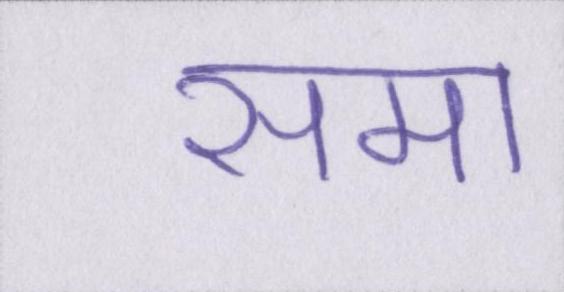 समा